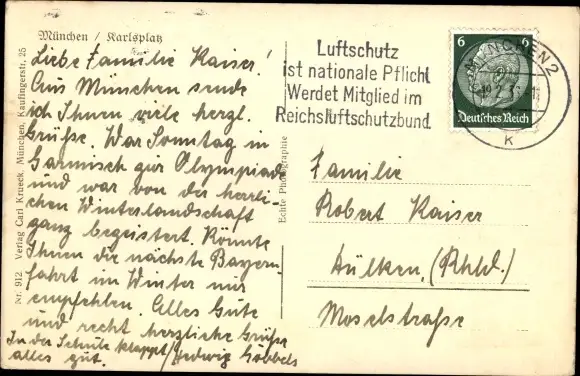 München / Karlsplatz
Liebe Familie Kaiser!
Aus München sende
ich Ihnen viele herzl.
Grüße. War Sonntag in
Garmisch zur Olympiade
und war von der herrli-
chen Winterlandschaft
ganz begeistert. Könnte
Ihnen die nächste Bayern-
fahrt im Winter nur
empfehlen. Alles Gute
und recht herzliche Grüße
In der Schule klappt Hedwig Göbbels
alles gut.
Nr. 912 Verlag Carl Krueck, München, Kaufingerstr. 25
Echte Photographie
Luftschutz
ist nationale Pflicht
Werdet Mitglied im
Reichsluftschutzbund
MÜNCHEN 2
K
6 6
Deutsches Reich
Familie
Robert Kaiser
Dülken, (Rhld.)
Moselstraße